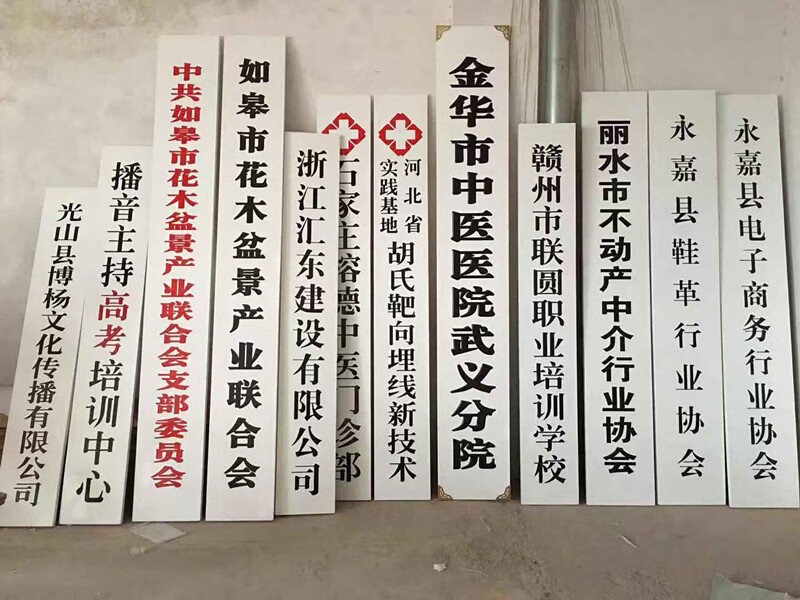 光山县博杨文化传播有限公司
播音主持高考培训中心
中共如皋市花木盆景产业联合会支部委员会
如皋市花木盆景产业联合会
浙江汇东建设有限公司
石家庄榕德中医门诊部
河北省
实践基地
胡氏靶向埋线新技术
金华市中医医院武义分院
赣州市联圆职业培训学校
丽水市不动产中介行业协会
永嘉县鞋革行业协会
永嘉县电子商务行业协会